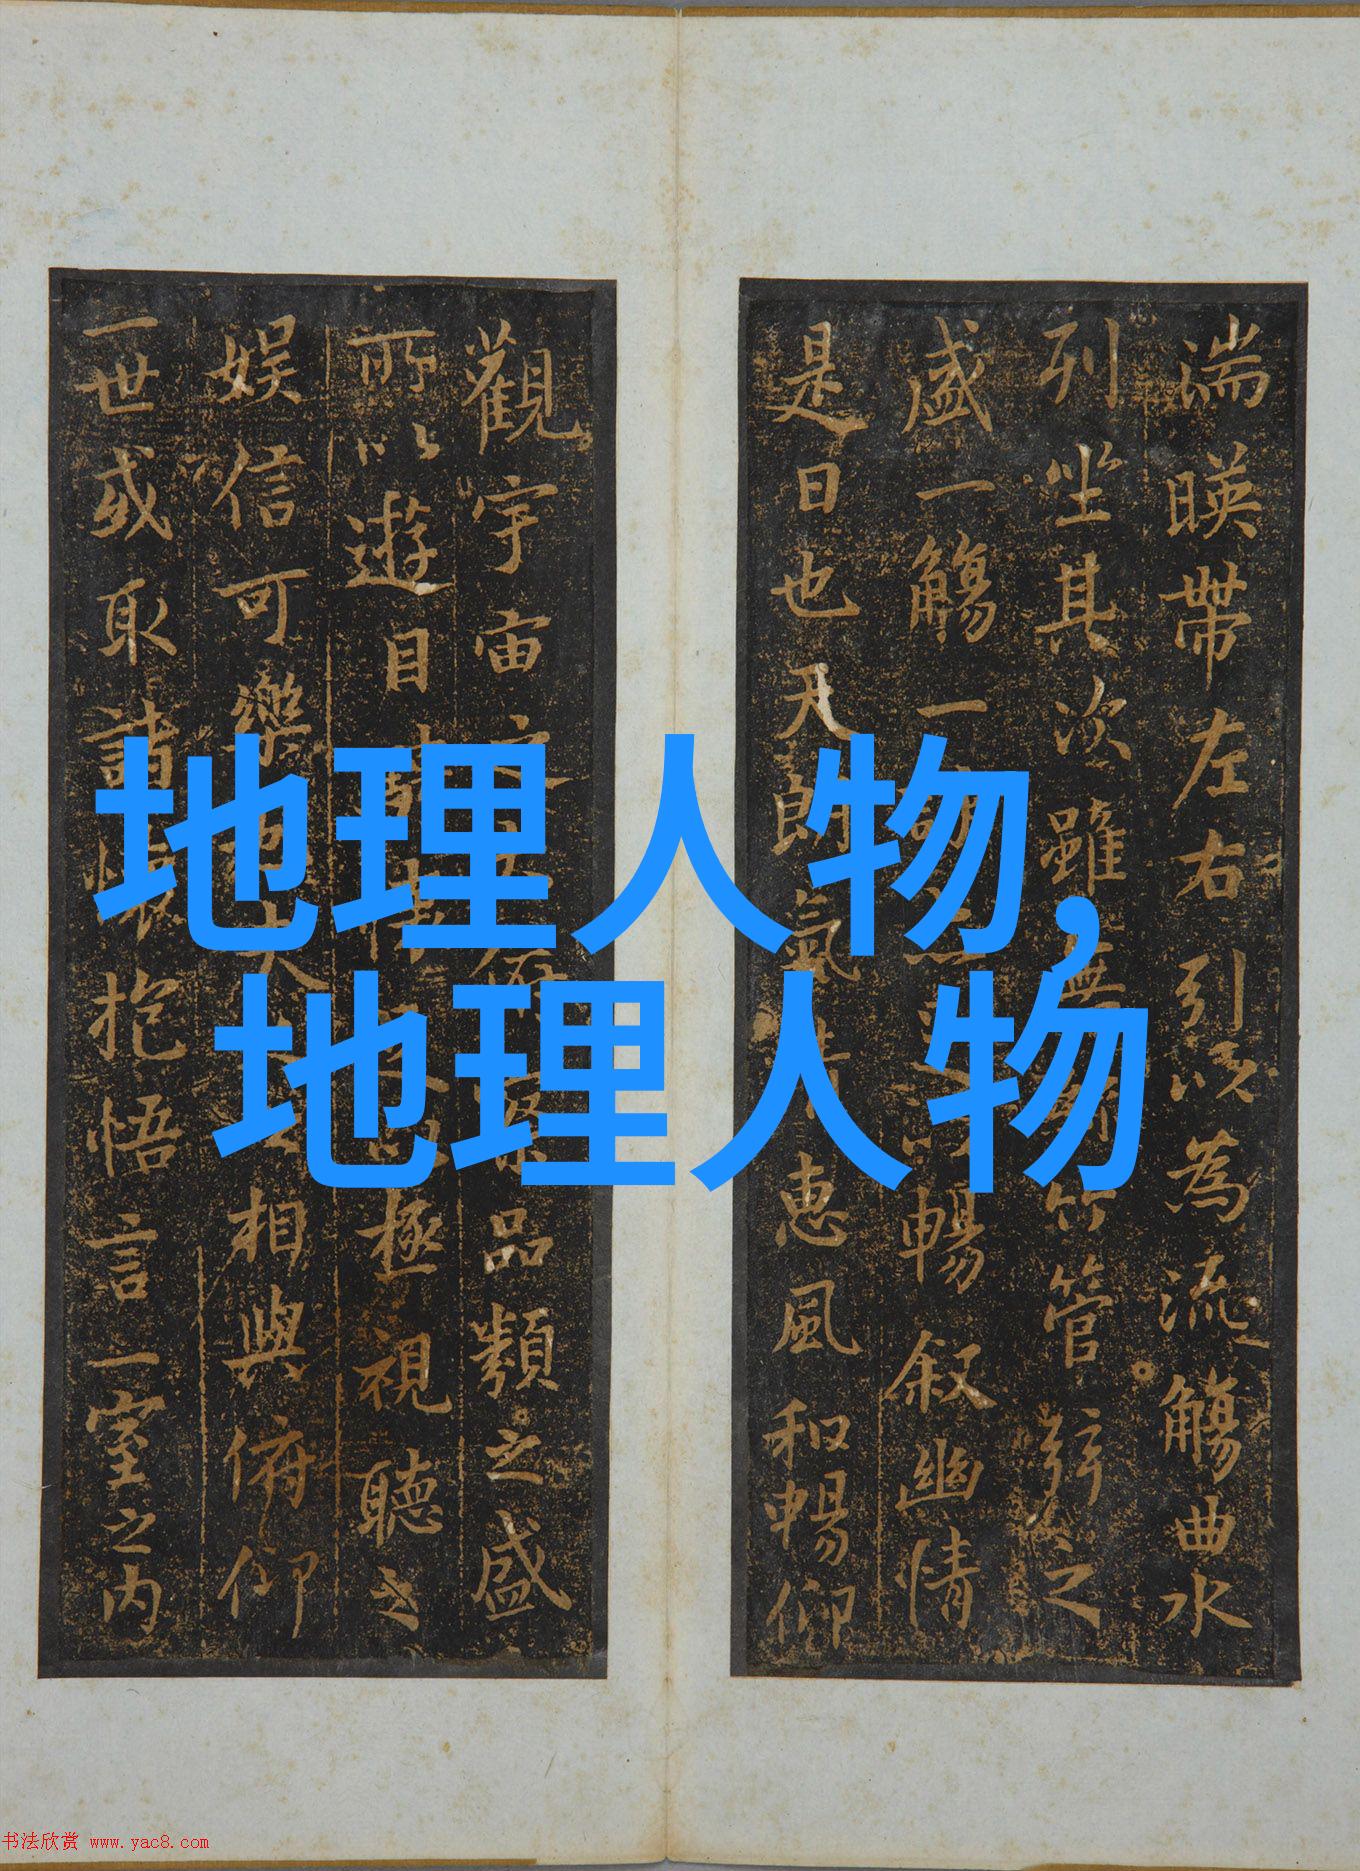 湍暎帶左右引以為流觴曲水
列坐其次雖無竹管弦之
盛一觴一暢叙幽情
是日也天朗氣惠風和暢仰
觀宇宙品類之盛
所以遊目極視聽之
娱信可樂相與俯仰
一世或取諸懷抱悟言一室之内
地理人物,
地理人物
书法欣赏 www.yac8.com